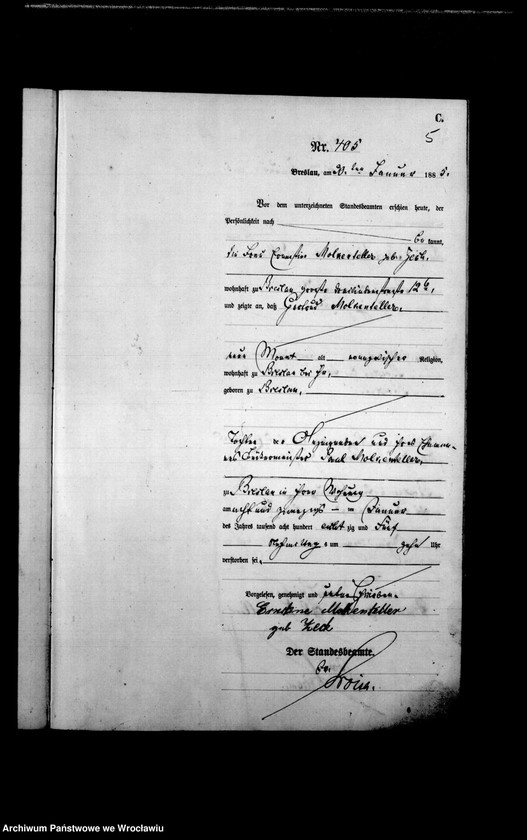 C.
5
Nr. 405
Breslau, am Januar 1885.
Vor dem unterzeichneten Standesbeamten erschien heute, der
Persönlichkeit nach
be kannt,
die Frau Ernestine Molkenteller geb. Zech,
wohnhaft zu Breslau, große 12
und zeigte an, daß Molkenteller,
ein Monat alt evangelischer Religion,
wohnhaft zu Breslau bei ihr,
geboren zu Breslau,
Tochter der Anzeigenden und ihres
Paul Molkenteller,
zu Breslau in ihrer Wohnung
am acht und zwanzigsten Januar
des Jahres tausend acht hundert acht zig und fünf
Nachmittags um zehn Uhr
verstorben sei.
Vorgelesen, genehmigt und unterschrieben
Ernstine Molkenteller
geb Zech
Der Standesbeamte.
Archiwum Państwowe we Wrocławiu